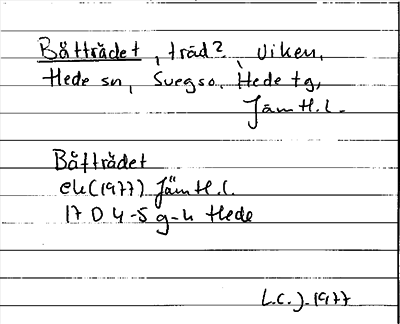 Båtträdet, träd? Viken,
Hede sn, Svegs o. Hede tg,
Jämtl.l.
Båtträdet
ek(1977) Jämtl.l.
17 D 4-5 g-h Hede
L.C.J. 1977